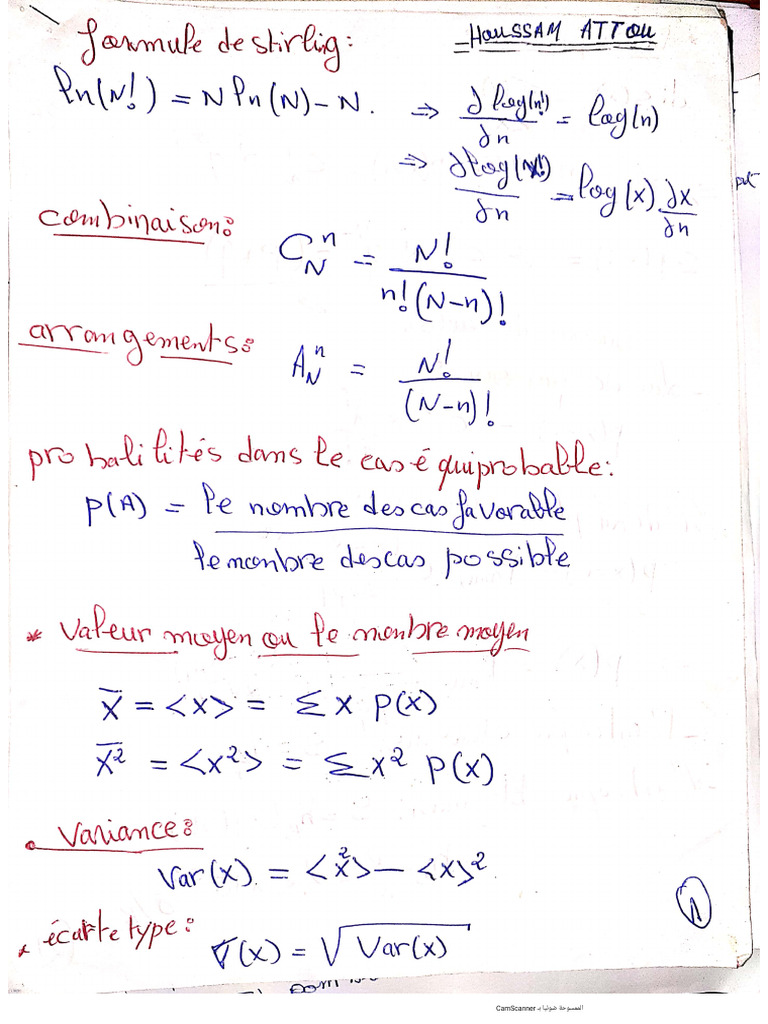 formule de stirlig:
HOUSSAM ATTOU
ln(N!) = N ln(N) - N. ⇒ ∂log(n!)/∂n = log(n)
⇒ ∂log(x!)/∂n = log(x) ∂x/∂n
combinaison:
C_N^n = N!/n!(N-n)!
arrangements:
A_N^n = N!/(N-n)!
probalilités dans le cas équiprobable:
P(A) = le nombre des cas favorable
le nombre des cas possible
* Valeur moyen ou le nombre moyen
x̄ = <x> = Σ x P(x)
x̄² = <x²> = Σ x² P(x)
• Variance:
Var(x) = <x²> - <x>²
* écarte type:
σ(x) = √Var(x)
1
الممسوحة ضوئيا بـ CamScanner